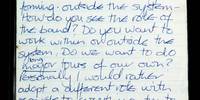 forming. outside the system -
How do you see the role of
the band? Do you want to
work within or outside the
system. Do we want to do
long
major tours of our own?
Personally I would rather
adopt a different role with